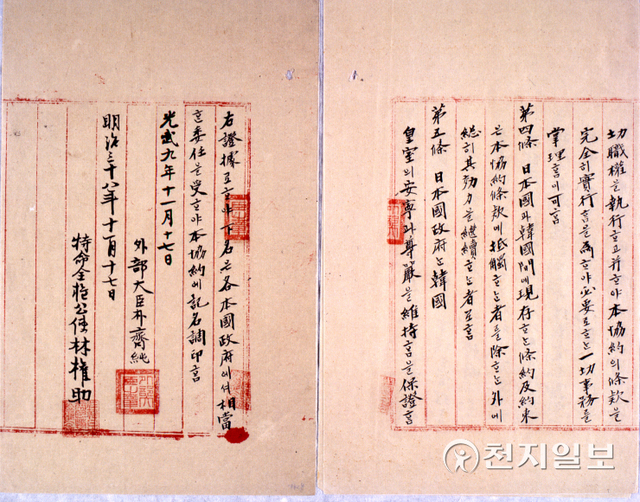 切職權을執行ᄒᆞ고並ᄒᆞ야本協約의條款을
完全히實行ᄒᆞᆷ을爲ᄒᆞ야必要로ᄒᆞᄂᆞᆫ一切事務를
掌理ᄒᆞᆷ이可ᄒᆞᆷ
第四條 日本國과韓國間에現存ᄒᆞᄂᆞᆫ條約及約束
은本協約條款에抵觸ᄒᆞᄂᆞᆫ者를除ᄒᆞᄂᆞᆫ外에
總히其効力을繼續ᄒᆞᄂᆞᆫ者로ᄒᆞᆷ
第五條 日本國政府ᄂᆞᆫ韓國
皇室의安寧과尊嚴을維持ᄒᆞᆷ을保證ᄒᆞᆷ
右證據로ᄒᆞ야下名은各本國政府에셔相當
ᄒᆞᆫ委任을受ᄒᆞ야本協約에記名調印ᄒᆞᆷ
光武九年十一月十七日
外部大臣朴齊純
明治三十八年十一月十七日
特命全權公使林權助
천지일보